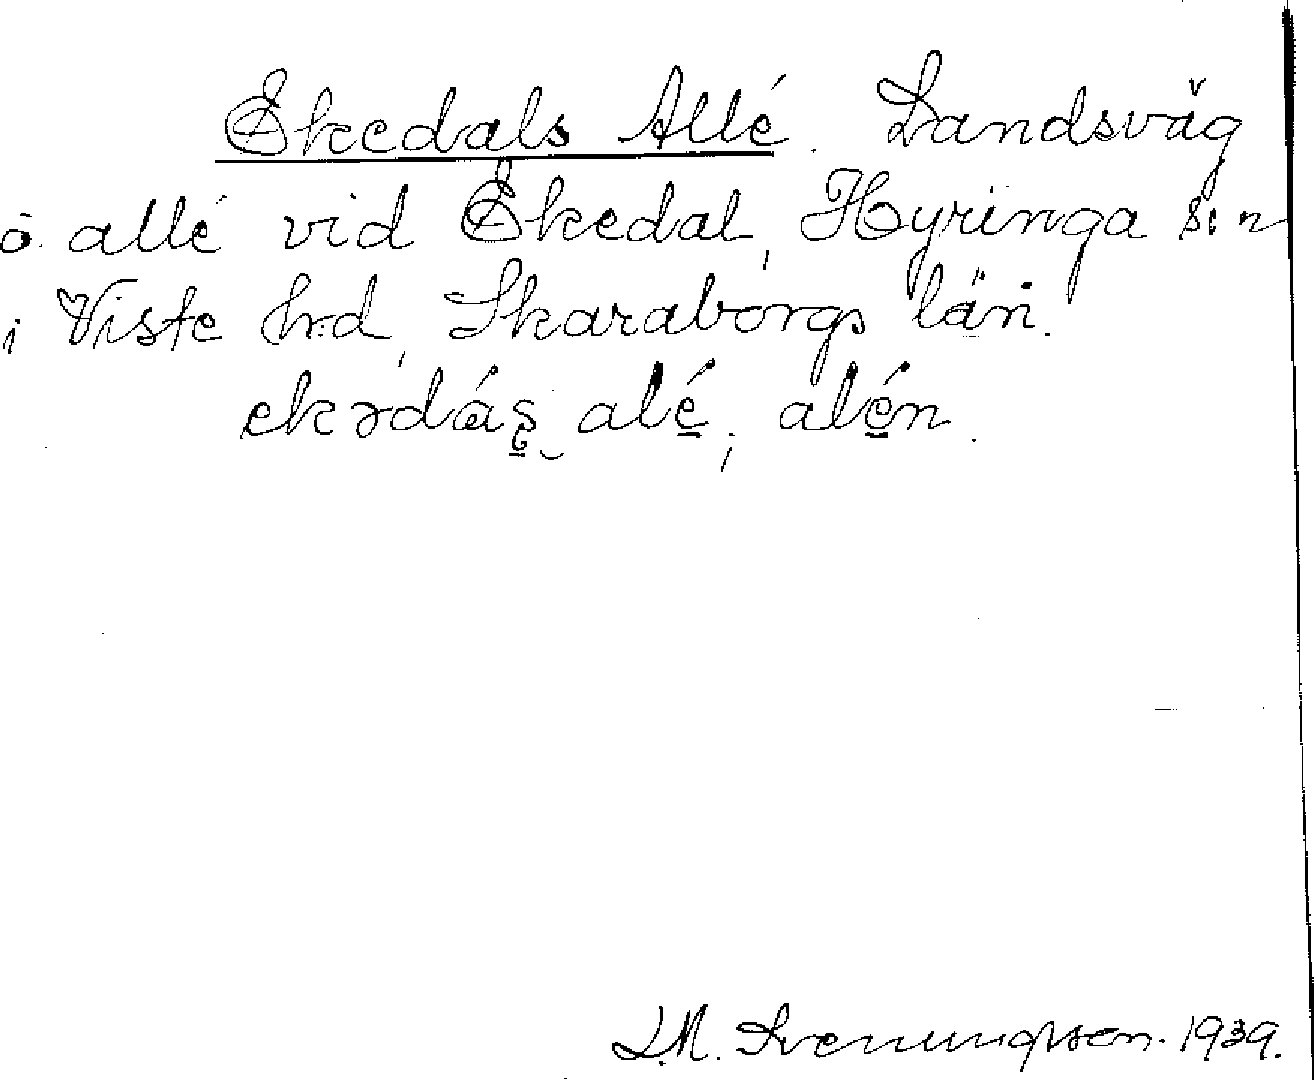 Ekedals Allé. Landsväg
o. allé vid Ekedal, Hyringa s:n
i Viste h:d, Skaraborgs län.
ekədás̱ alé, alén.
J.M. Svenungsson. 1939.